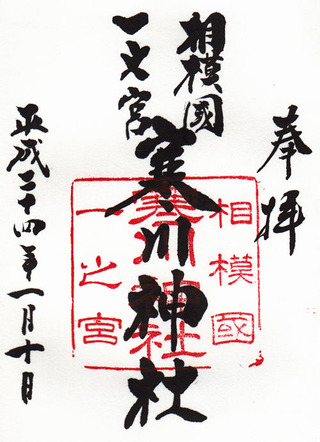 奉拝
相模國
一之宮
寒川神社
平成二十四年一月十日
相模國
寒川神社
一之宮